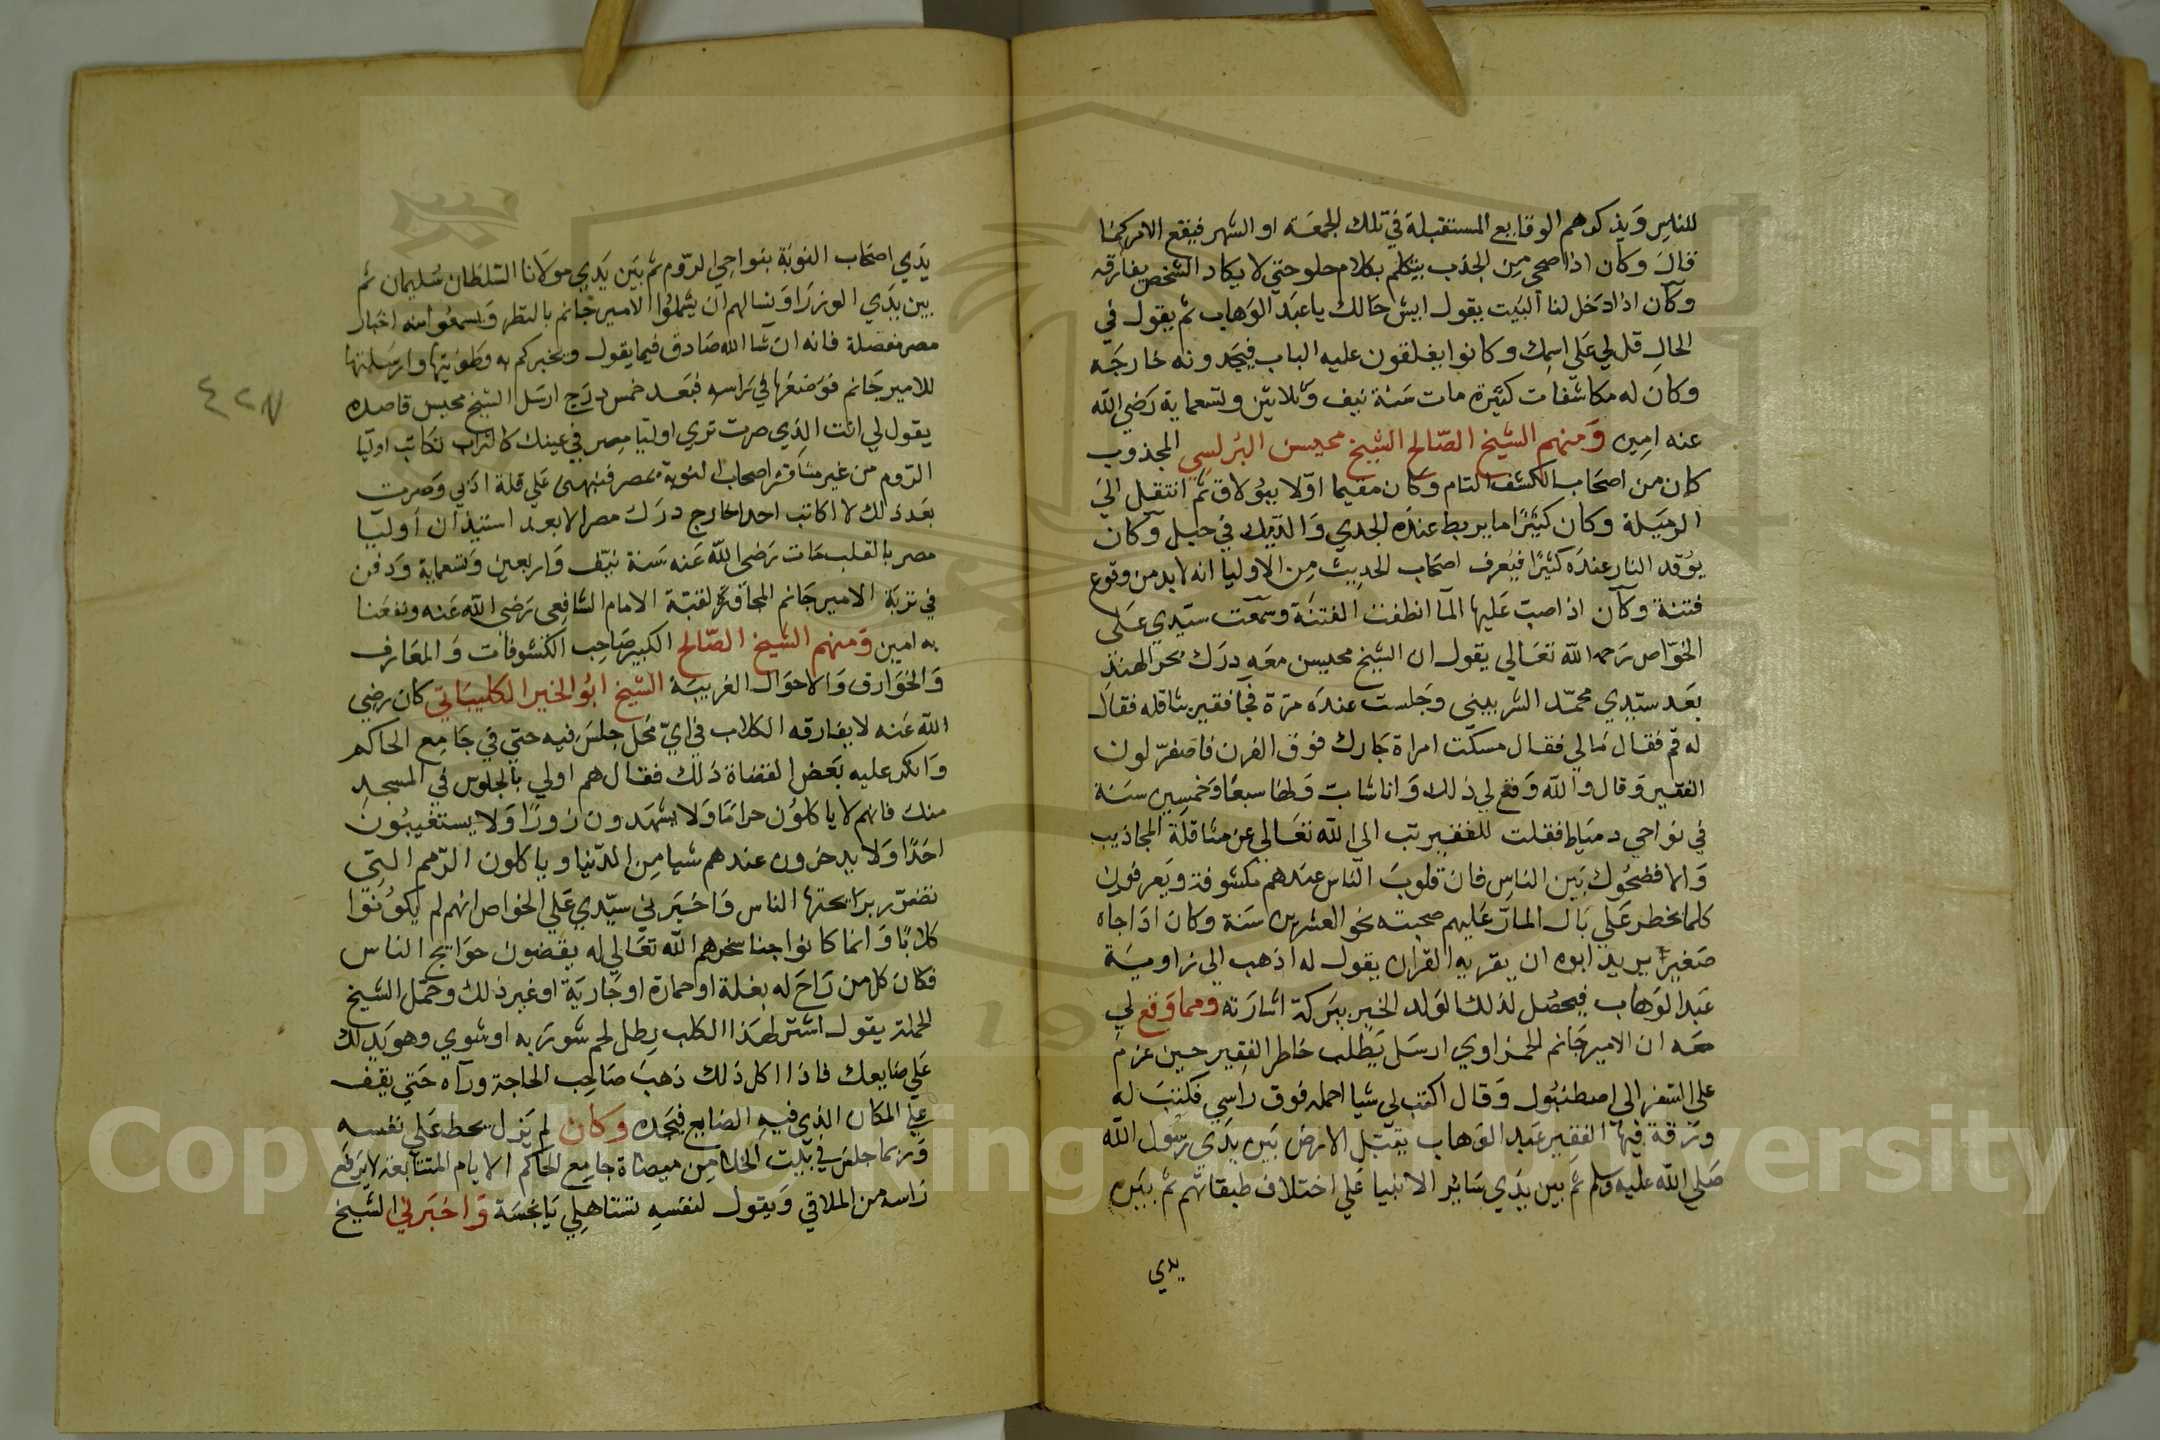 للناس ويذكر لهم الوقايع المستقبلة في تلك الجمعة او الشهر فيقع الامر كما
قال وكان اذا صحي من الجذب يتكلم بكلام حلو حتي لا يكاد الشخص يفارقه
وكان اذا دخل لنا البيت يقول ايش حالك يا عبد الوهاب ثم يقول في
الحال قل لي علي اسمك وكانوا يغلقون عليه الباب فيجدونه خارجه
وكان له مكاشفات كثيرة مات سنة نيف وثلاثين وتسعماية رضي الله
عنه امين ومنهم الشيخ الصالح الشيخ محيسن البرلسي المجذوب
كان من اصحاب الكشف التام وكان مقيما اولا ببولاق ثم انتقل الي
الرميلة وكان كثيرا ما يربط عنده الجدي والديك في حبل وكان
يوقد النار عنده كثيرا فيعرف اصحاب الحديث من الاوليا انه لا بد من وقوع
فتنة وكان اذا صب عليها الما انطفت الفتنة وسمعت سيدي علي
الخواص رحمه الله تعالي يقول ان الشيخ محيسن معه درك بحر الهند
بعد سيدي محمد الشربيني وجلست عنده مرة فجا فقير شاقله فقال
له قم فقال مالي فقال مسكت امراة جارك فوق الفرن فاصفر لون
الفقير وقال والله وقع لي ذلك وانا شاب ولها سبعا وخمسين سنة
في نواحي دمياط فقلت للفقير تب الي الله تعالي عن مشاقلة المجاذيب
والا فضحوك بين الناس فان قلوب الناس عندهم مكشوفة ويعرفون
كلما يخطر علي بال المار عليهم صحبته نحو العشرين سنة وكان اذا جاه
صغير يريد ابوه ان يقريه القران يقول له اذهب الي زاوية
عبد الوهاب فيحصل لذلك الولد الخير ببركة اشارته ومما وقع لي
معه ان الامير جانم الحمزاوي ارسل يطلب خاطر الفقير حين عزم
علي السفر الي اصطنبول وقال اكتب لي شيا احمله فوق راسي فكتبت له
ورقة فيها الفقير عبد الوهاب يقبل الارض بين يدي رسول الله
صلي الله عليه وسلم ثم بين يدي سائر الانبيا علي اختلاف طبقاتهم ثم بين
يدي
يدي اصحاب النوبة بنواحي الروم ثم بين يدي مولانا السلطان سليمان ثم
بين يدي الوزرا ونسالهم ان يشملوا الامير جانم بالنظر ويسمعوا منه اخبار
مصر مفصلة فانه ان شا الله صادق فيما يقول ويخبركم به وطويتها وارسلتها
للامير جانم فوضعها في راسه فبعد خمس درج ارسل الشيخ محيسن قاصده
يقول لي انت الذي صرت تري اوليا مصر في عينك كالتراب تكاتب اوليا
الروم من غير مشاورة اصحاب النوبة بمصر فنبهني علي قلة ادبي وصرت
بعد ذلك لا اكاتب احدا خارج درك مصر الا بعد استيذان اوليا
مصر بالقلب مات رضي الله عنه سنة نيف واربعين وتسعماية ودفن
في تربة الامير جانم المجاورة لقبة الامام الشافعي رضي الله عنه ونفعنا
به امين ومنهم الشيخ الصالح الكبير صاحب الكشوفات والمعارف
والخوارق والاحوال الغريبة الشيخ ابو الخير الكليباتي كان رضي
الله عنه لا يفارقه الكلاب في اي محل جلس فيه حتي في جامع الحاكم
وانكر عليه بعض القضاة ذلك فقال هم اولي بالجلوس في المسجد
منك فانهم لا ياكلون حراما ولا يشهدون زورا ولا يستغيبون
احدا ولا يدخرون عندهم شيا من الدنيا وياكلون الرمم التي
تضر برايحتها الناس واخبرني سيدي علي الخواص انهم لم يكونوا
كلابا وانما كانوا جنا سخرهم الله تعالي له يقضون حوايج الناس
فكان كل من راح له بغلة او حمارة او جارية او غير ذلك وحمل الشيخ
الحملة يقول اشتر لهذا الكلب رطل لحم شوربه او شوي وهو يدلك
علي ضايعك فاذا اكل ذلك ذهب صاحب الحاجة وراه حتي يقف
علي المكان الذي فيه الضايع فيجده وكان لم يزل يحط علي نفسه
وربما جلس في بيت الخلا من ميضاة جامع الحاكم الايام المتتابعة لا يرفع
راسه من الملاقي ويقول لنفسه تستاهلي يا نجسة واخبرني الشيخ
٤٢٧
Copyright © King Saud University